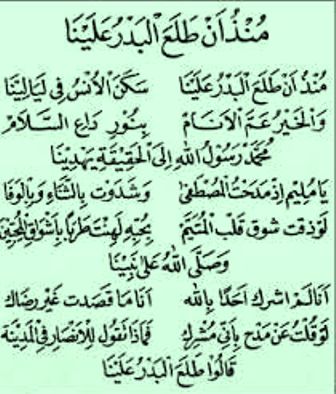 مُنْذُ اَنْ طَلَعَ الْبَدْرُ عَلَيْنَا
مُنْذُ اَنْ طَلَعَ الْبَدْرُ عَلَيْنَا سَكَنَ الْاُنْسُ فِي لَيَالِيْنَا
وَالْخَيْرُ عَمَّ الْاَنَامْ بِنُوْرِ دَاعِ السَّلَامْ
مُحَمَّدْ رَسُوْلُ اللهِ اِلَى الْحَقِيْقَةِ يَهْدِيْنَا
يَا مُلِيْمِ اِذْ مَدَحْتُ الْمُصْطَفَى وَشَدَوْتُ بِالثَّنَاءِ وَبِالْوَفَا
لَوْ ذُقْتَ شَوْقَ قَلْبِ الْمُتَيَّمْ بِحُبِّهِ لَهِنْتَ طَرْبًا بِاَشْوَاقِ الْمُحِبِّيْنَ
وَصَلَّى اللهُ عَلَى نَبِيِّنَا
اَنَا لَمْ اُشْرِكْ اَحَدًا بِاللهِ اَنَا مَا قَصَدْتُ غَيْرَ رِضَاكَ
لَوْ قُلْتَ عَنْ مَدْحِ بِاَنِّي مُشْرِكٌ فَمَاذَا نَقُوْلُ لِلْاَنْصَارِ فِي الْمَدِيْنَةِ
قَالُوْا طَلَعَ الْبَدْرُ عَلَيْنَا